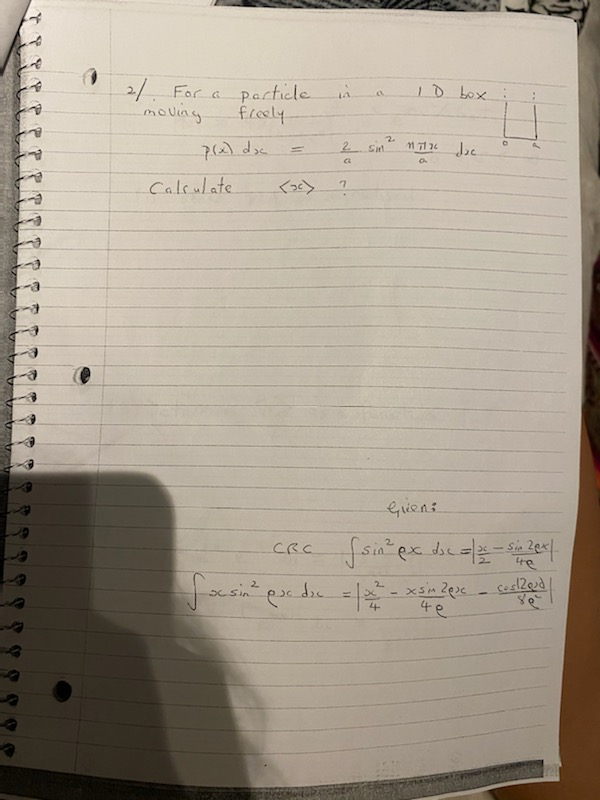 2/ For a particle in a 1D box
moving freely
0 a
p(x) dx = 2/a sin² nπx/a dx
Calculate <x> ?
Given:
CRC ∫ sin² ρx dx = |x/2 - sin 2ρx/4ρ|
∫ x sin² ρx dx = |x²/4 - x sin 2ρx/4ρ - cos(2ρx)/8ρ²|